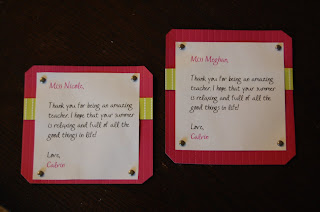 Miss Nicole,
Thank you for being an amazing
teacher. I hope that your summer
is relaxing and full of all the
good things in life!
Love,
Miss Meghan,
Thank you for being an amazing
teacher. I hope that your summer
is relaxing and full of all the
good things in life!
Love,